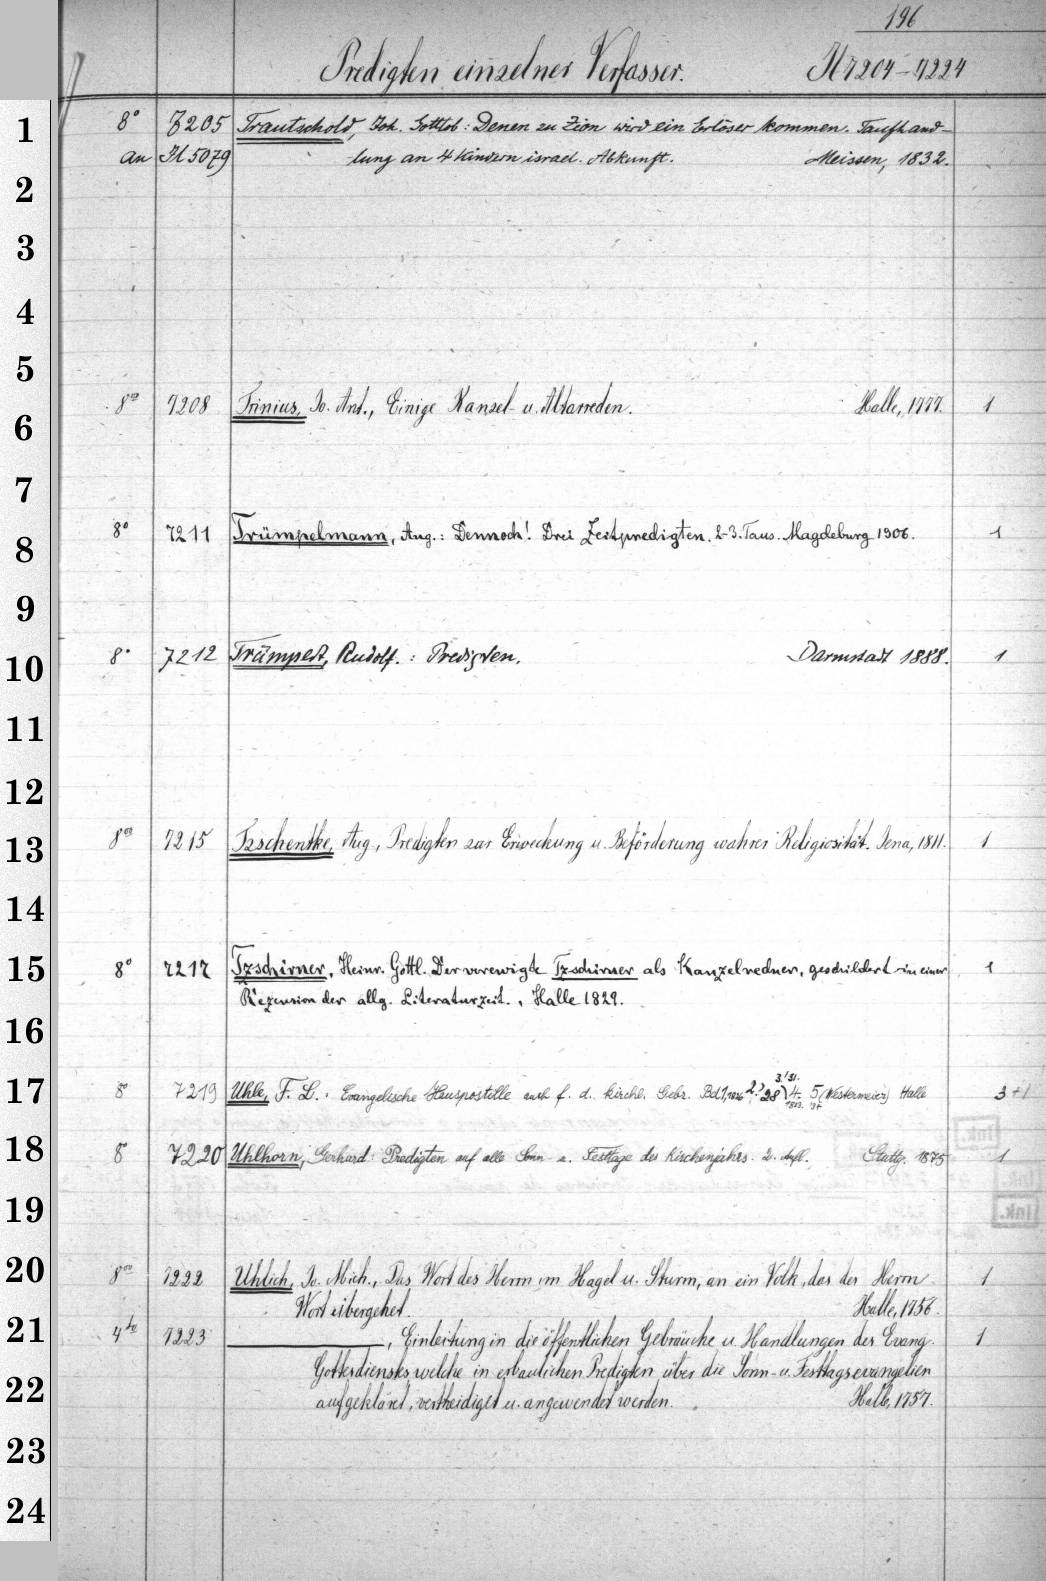 196
Predigten einzelner Verfasser. H 7204-7224
1 8° 7205 Trautschold, Joh. Gottlob: Denen zu Zion wird ein Erlöser kommen. Taufhand-
an H 5079 lung an 4 Kindern israel. Abkunft. Meissen, 1832.
2
3
4
5
8° 7208 Trinius, Jo. Ant., Einige Kanzel- u. Altarreden. Halle, 1777. 1
6
7
8 8° 7211 Trümpelmann, Aug.: Dennoch! Drei Zeitpredigten. 2-3. Taus. Magdeburg 1906. 1
9
10 8° 7212 Trümpert, Rudolf. : Predigten. Darmstadt 1888. 1
11
12
13 8vo 7215 Tzschentke, Aug., Predigten zur Erweckung u. Beförderung wahrer Religiosität. Jena, 1811. 1
14
15 8° 7217 Tzschirner, Heinr. Gottl. Der verewigte Tzschirner als Kanzelredner, geschildert in einer 1
Rezension der allg. Literaturzeit., Halle 1829.
16
17 8° 7219 Uhle, F. L.: Evangelische Hauspostille auch f. d. kirchl. Gebr. Bd 1, 1826 2.) 28) 3.) 31. 4. 5 (Westermeier) Halle 3+1
18 8° 7220 Uhlhorn, Gerhard: Predigten auf alle Sonn- u. Festtage des Kirchenjahrs. 2. Aufl. Stuttg. 1875 1
19 Ink.
20 8vo 7222 Uhlich, Jo. Mich., Das Wort des Herrn im Hagel u. Sturm, an ein Volk, das des Herrn 1
Wort übergehet. Halle, 1756.
21 4to 7223 ———, Einleitung in die öffentlichen Gebräuche u. Handlungen des Evang. 1
22 Gottesdiensts, welche in erbaulichen Predigten über die Sonn- u. Festtagsevangelien
aufgekläret, vertheidiget u. angewendet werden. Halle, 1757.
23
24